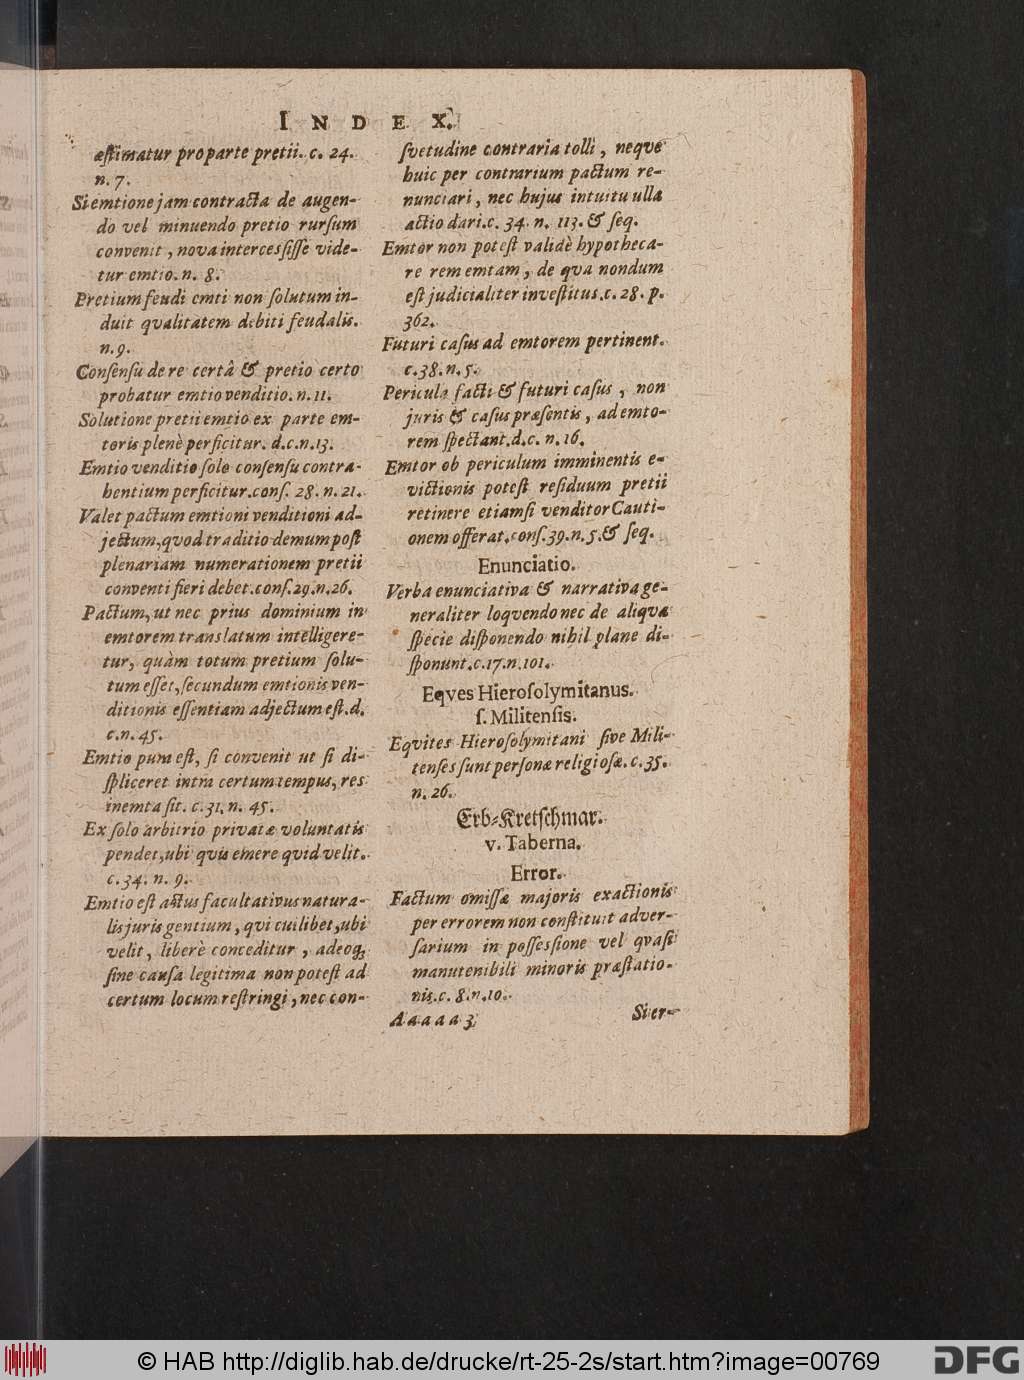 INDEX.
æſtimatur pro parte pretii. c. 24.
n. 7.
Si emtione jam contracta de augen-
do vel minuendo pretio rurſum
convenit, nova interceſſiſſe vide-
tur emtio. n. 8.
Pretium feudi emti non ſolutum in-
duit qvalitatem debiti feudalis.
n. 9.
Conſenſu de re certâ & pretio certo
probatur emtio venditio. n. 11.
Solutione pretii emtio ex parte em-
toris plenè perficitur. d. c. n. 13.
Emtio venditio ſolo conſenſu contra-
hentium perficitur. conſ. 28. n. 21.
Valet pactum emtioni venditioni ad-
jectum, quod traditio demum poſt
plenariam numerationem pretii
conventi fieri debet. conſ. 29. n. 26.
Pactum, ut nec prius dominium in
emtorem translatum intelligere-
tur, quàm totum pretium ſolu-
tum eſſet, ſecundum emtionis ven-
ditionis eſſentiam adjectum eſt. d.
c. n. 45.
Emtio pura eſt, ſi convenit ut ſi di-
ſpliceret intra certum tempus, res
inemta ſit. c. 31. n. 45.
Ex ſolo arbitrio privatæ voluntatis
pendet, ubi quis emere quid velit.
c. 34. n. 9.
Emtio eſt actus facultativus natura-
lis juris gentium, qvi cuilibet, ubi
velit, liberè conceditur, adeoq;
ſine cauſa legitima non poteſt ad
certum locum reſtringi, nec con-
ſvetudine contraria tolli, neqve
huic per contrarium pactum re-
nunciari, nec hujus intuitu ulla
actio dari. c. 34. n. 113. & ſeq.
Emtor non poteſt validè hypotheca-
re rem emtam, de qva nondum
eſt judicialiter inveſtitus. c. 28. p.
362.
Futuri caſus ad emtorem pertinent.
c. 38. n. 5.
Pericula facti & futuri caſus, non
juris & caſus præſentis, ad emto-
rem ſpectant. d. c. n. 16.
Emtor ob periculum imminentis e-
victionis poteſt reſiduum pretii
retinere etiamſi venditor Cauti-
onem offerat. conſ. 39. n. 5. & ſeq.
Enunciatio.
Verba enunciativa & narrativa ge-
neraliter loqvendo nec de aliqva
ſpecie diſponendo nihil plane di-
ſponunt. c. 17. n. 101.
Eqves Hieroſolymitanus.
ſ. Militenſis.
Eqvites Hieroſolymitani ſive Mili-
tenſes ſunt perſonæ religioſæ. c. 35.
n. 26.
Erb-Kretſchmar.
v. Taberna.
Error.
Factum omiſſæ majoris exactionis
per errorem non conſtituit adver-
ſarium in poſſeſſione vel qvaſi
manutenibili minoris præſtatio-
nis. c. 8. n. 10.
Aaaaa 3
Si er-
© HAB http://diglib.hab.de/drucke/rt-25-2s/start.htm?image=00769
DFG